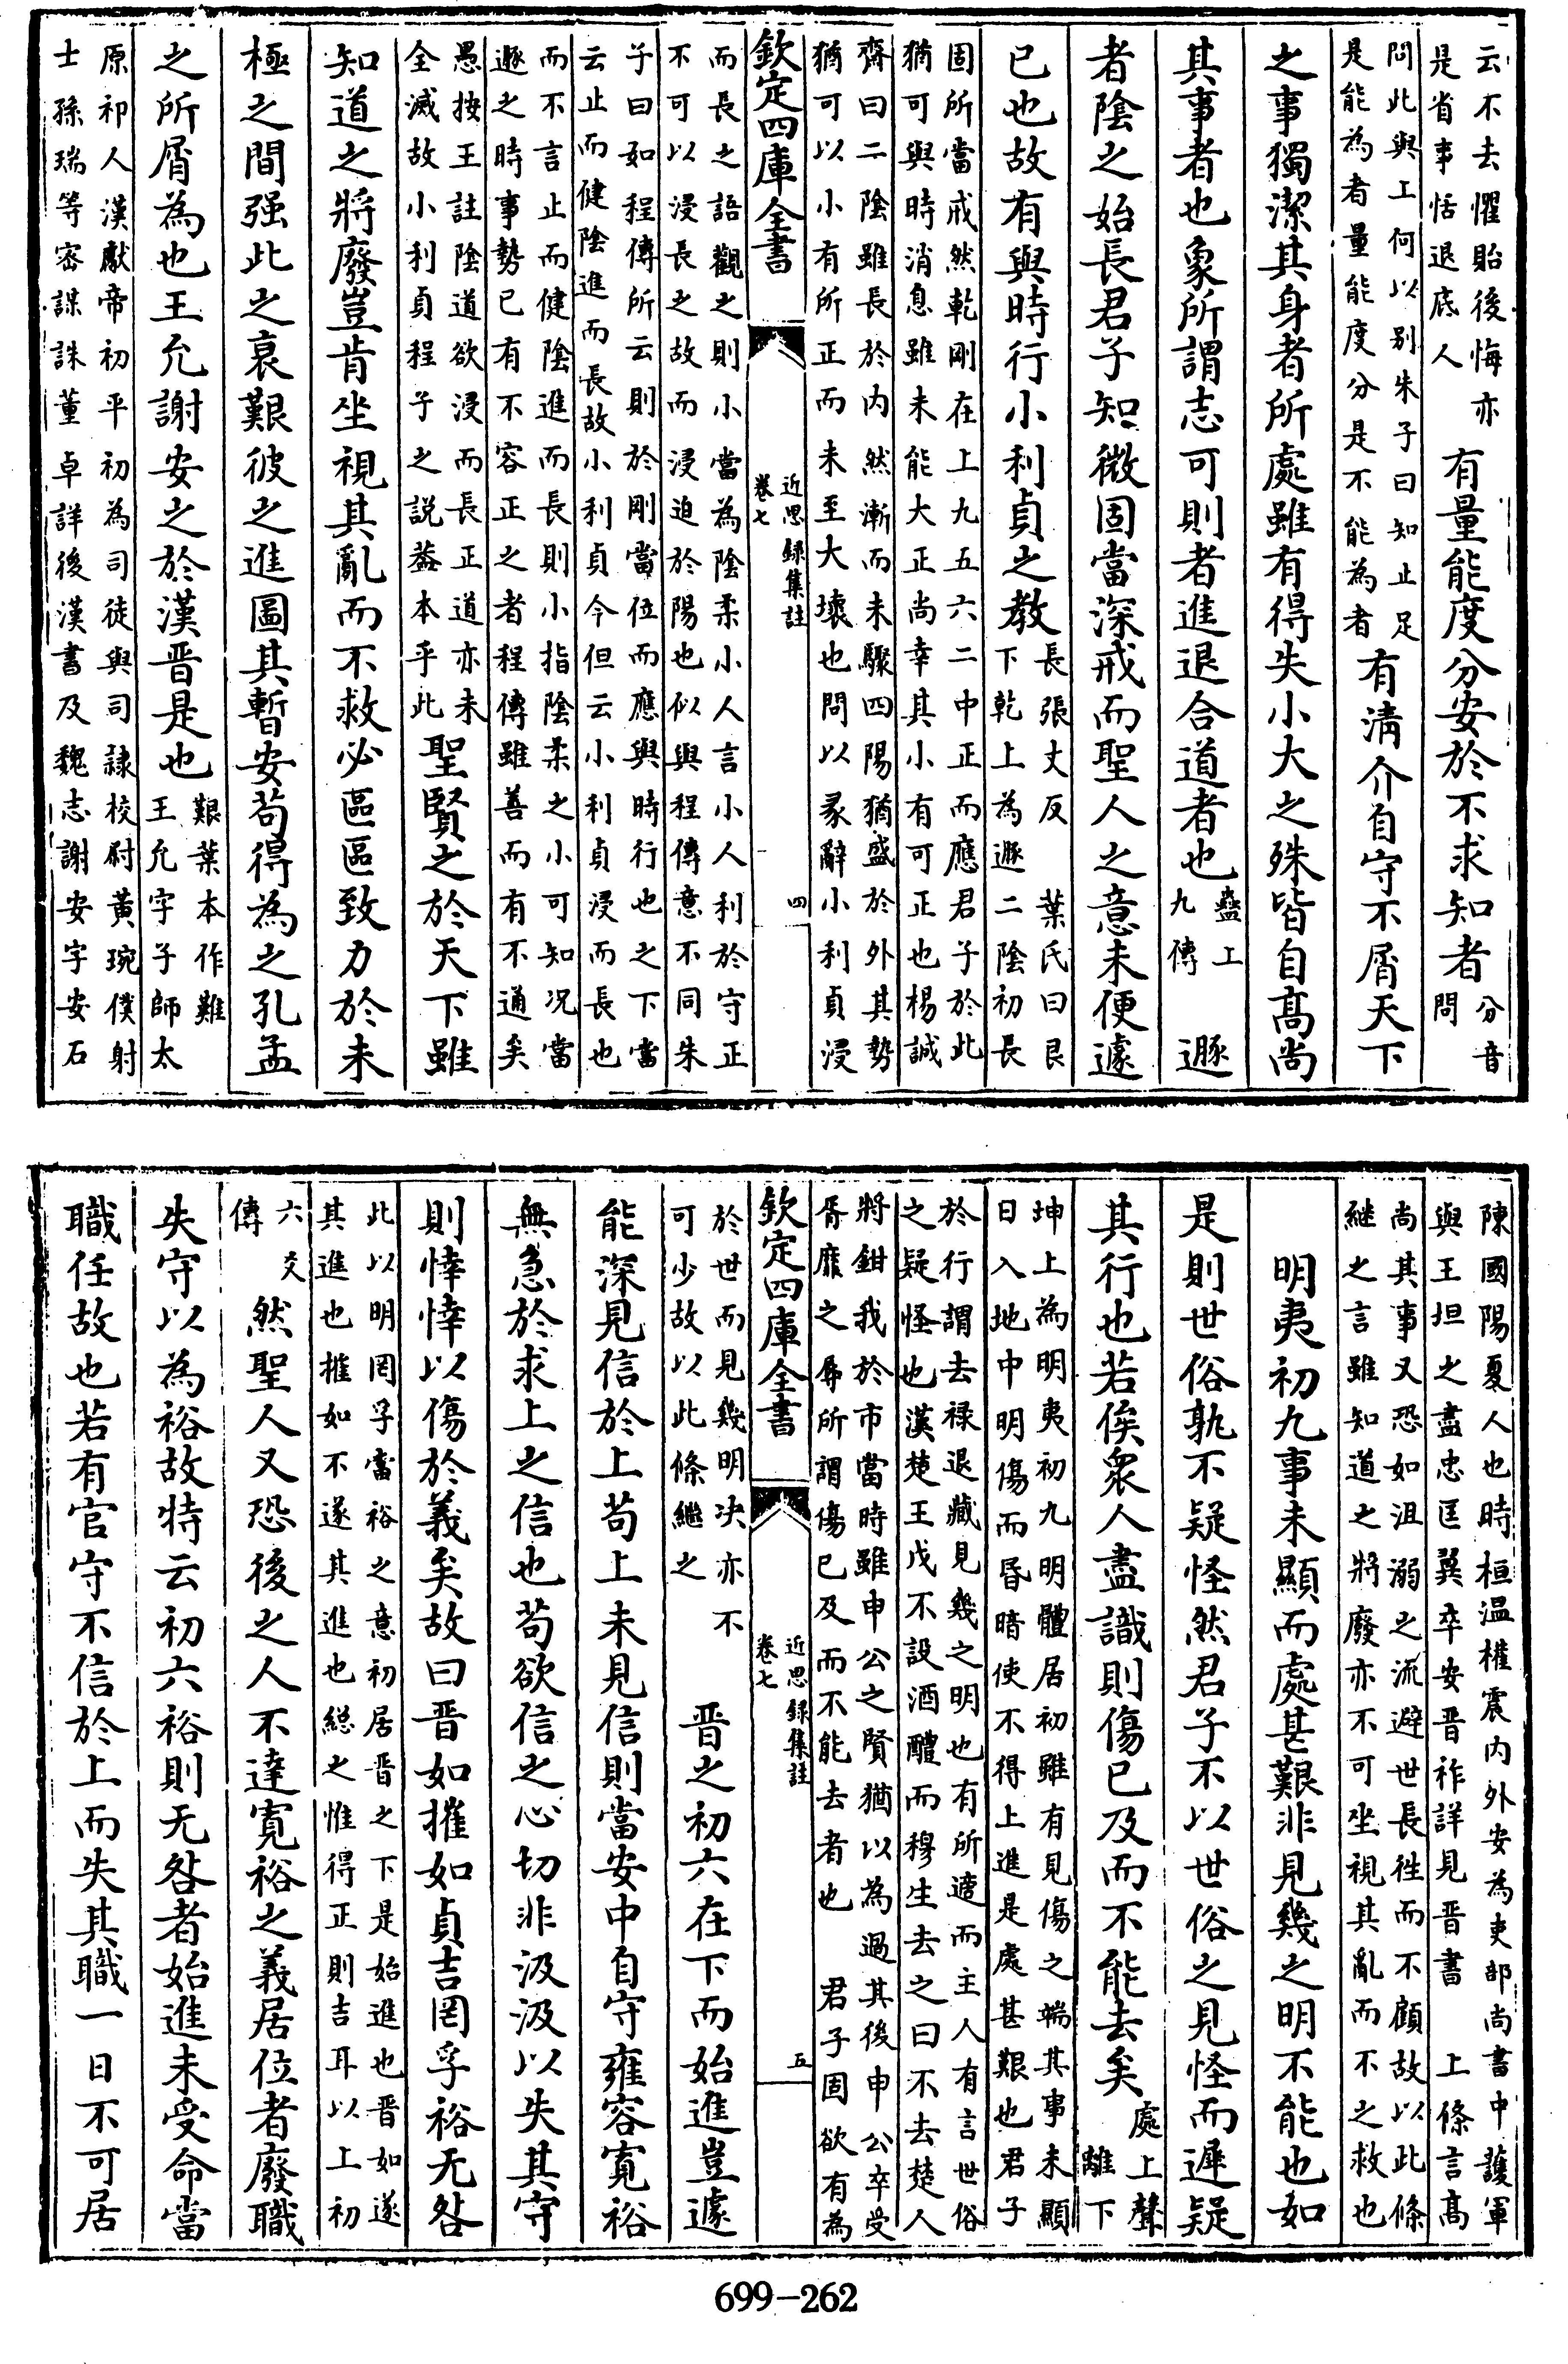 云不去懼貽後悔亦
是省事恬退底人
有量能度分安於不求知者
分音
問
問此與上何以别朱子曰知止足
是能為者量能度分是不能為者
有清介自守不屑天下
之事獨潔其身者所處雖有得失小大之殊皆自髙尚
其事者也象所謂志可則者進退合道者也
蠱上
九傳
遯
者陰之始長君子知微固當深戒而聖人之意未便遽
已也故有與時行小利貞之教
長張丈反　葉氏曰艮
下乾上為遯二陰初長
固所當戒然乾剛在上九五六二中正而應君子於此
猶可與時消息雖未能大正尚幸其小有可正也楊誠
齋曰二陰雖長於内然漸而未驟四陽猶盛於外其勢
猶可以小有所正而未至大壞也問以彖辭小利貞浸
欽定四庫全書
近思録集註
卷七
四
而長之語觀之則小當為陰柔小人言小人利於守正
不可以浸長之故而浸迫於陽也似與程傳意不同朱
子曰如程傳所云則於剛當位而應與時行也之下當
云止而健陰進而長故小利貞今但云小利貞浸而長也
而不言止而健陰進而長則小指陰柔之小可知况當
遯之時事勢已有不容正之者程傳雖善而有不通矣
愚按王註陰道欲浸而長正道亦未
全滅故小利貞程子之説葢本乎此
聖賢之於天下雖
知道之將廢豈肯坐視其亂而不救必區區致力於未
極之間强此之衰艱彼之進圖其暫安苟得為之孔孟
之所屑為也王允謝安之於漢晋是也
艱葉本作難
王允字子師太
原祁人漢獻帝初平初為司徒與司隷校尉黃琬僕射
士孫瑞等宻謀誅董卓詳後漢書及魏志謝安字安石
陳國陽夏人也時桓温權震内外安為吏部尚書中護軍
與王坦之盡忠匡翼卒安晋祚詳見晋書　上條言髙
尚其事又恐如沮溺之流避世長徃而不顧故以此條
継之言雖知道之將廢亦不可坐視其亂而不之救也
明夷初九事未顯而處甚艱非見幾之明不能也如
是則世俗孰不疑怪然君子不以世俗之見怪而遲疑
其行也若俟衆人盡識則傷已及而不能去矣
處上聲
離下
坤上為明夷初九明體居初雖有見傷之端其事未顯
日入地中明傷而昏暗使不得上進是處甚艱也君子
於行謂去禄退藏見幾之明也有所適而主人有言世俗
之疑怪也漢楚王戊不設酒醴而穆生去之曰不去楚人
將鉗我於市當時雖申公之賢猶以為過其後申公卒受
胥靡之辱所謂傷已及而不能去者也　君子固欲有為
欽定四庫全書
近思録集註
卷七
五
於世而見幾明决亦不
可少故以此條繼之
晋之初六在下而始進豈遽
能深見信於上苟上未見信則當安中自守雍容寛裕
無急於求上之信也苟欲信之心切非汲汲以失其守
則悻悻以傷於義矣故曰晋如摧如貞吉罔孚裕无咎
此以明罔孚當裕之意初居晋之下是始進也晋如遂
其進也摧如不遂其進也緫之惟得正則吉耳以上初
六爻
傳
然聖人又恐後之人不達寛裕之義居位者廢職
失守以為裕故特云初六裕則无咎者始進未受命當
職任故也若有官守不信於上而失其職一日不可居
699-262